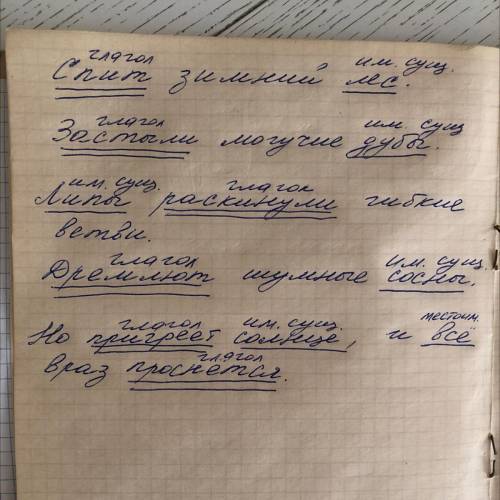 глагол им. сущ.
Спит зимний лес.
глагол им. сущ
Застыли могучие дубы.
им. сущ. глагол
Липы раскинули гибкие
ветви.
глагол им. сущ.
Дремлют шумные сосны.
глагол им. сущ. местоим.
Но пригреет солнце, и всё
глагол
враз проснётся.